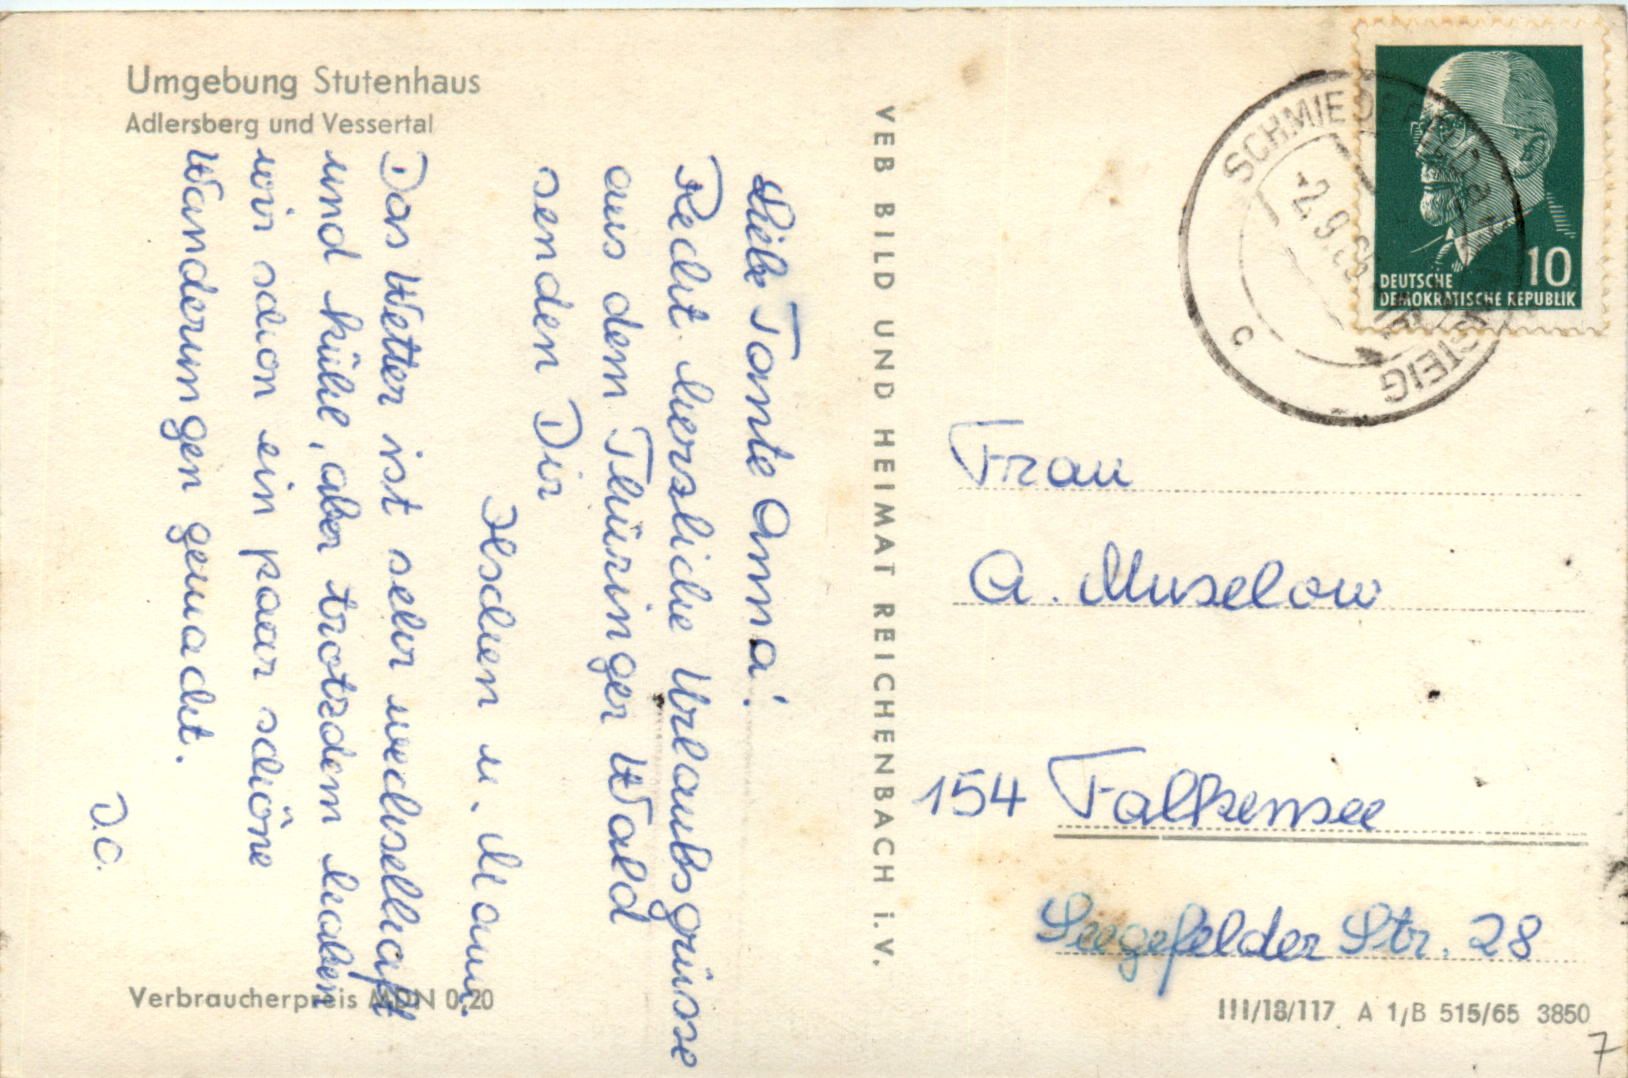 Umgebung Stutenhaus
Adlersberg und Vessertal
Liebe Tante Anna!
Recht herzliche Urlaubsgrüsse
aus dem Thüringer Wald
senden Dir
Ilschen u. Mann.
Das Wetter ist sehr wechselhaft
und kühl, aber trotzdem haben
wir schon ein paar schöne
Wanderungen gemacht.
D.O.
Verbraucherpreis MDN 0,20
VEB BILD UND HEIMAT REICHENBACH i.V.
DEUTSCHE
DEMOKRATISCHE REPUBLIK
10
-2.9.
C
Frau
A. Muselow
154 Falkensee
Seegefelder Str. 28
III/18/117 A 1/B 515/65 3850
7